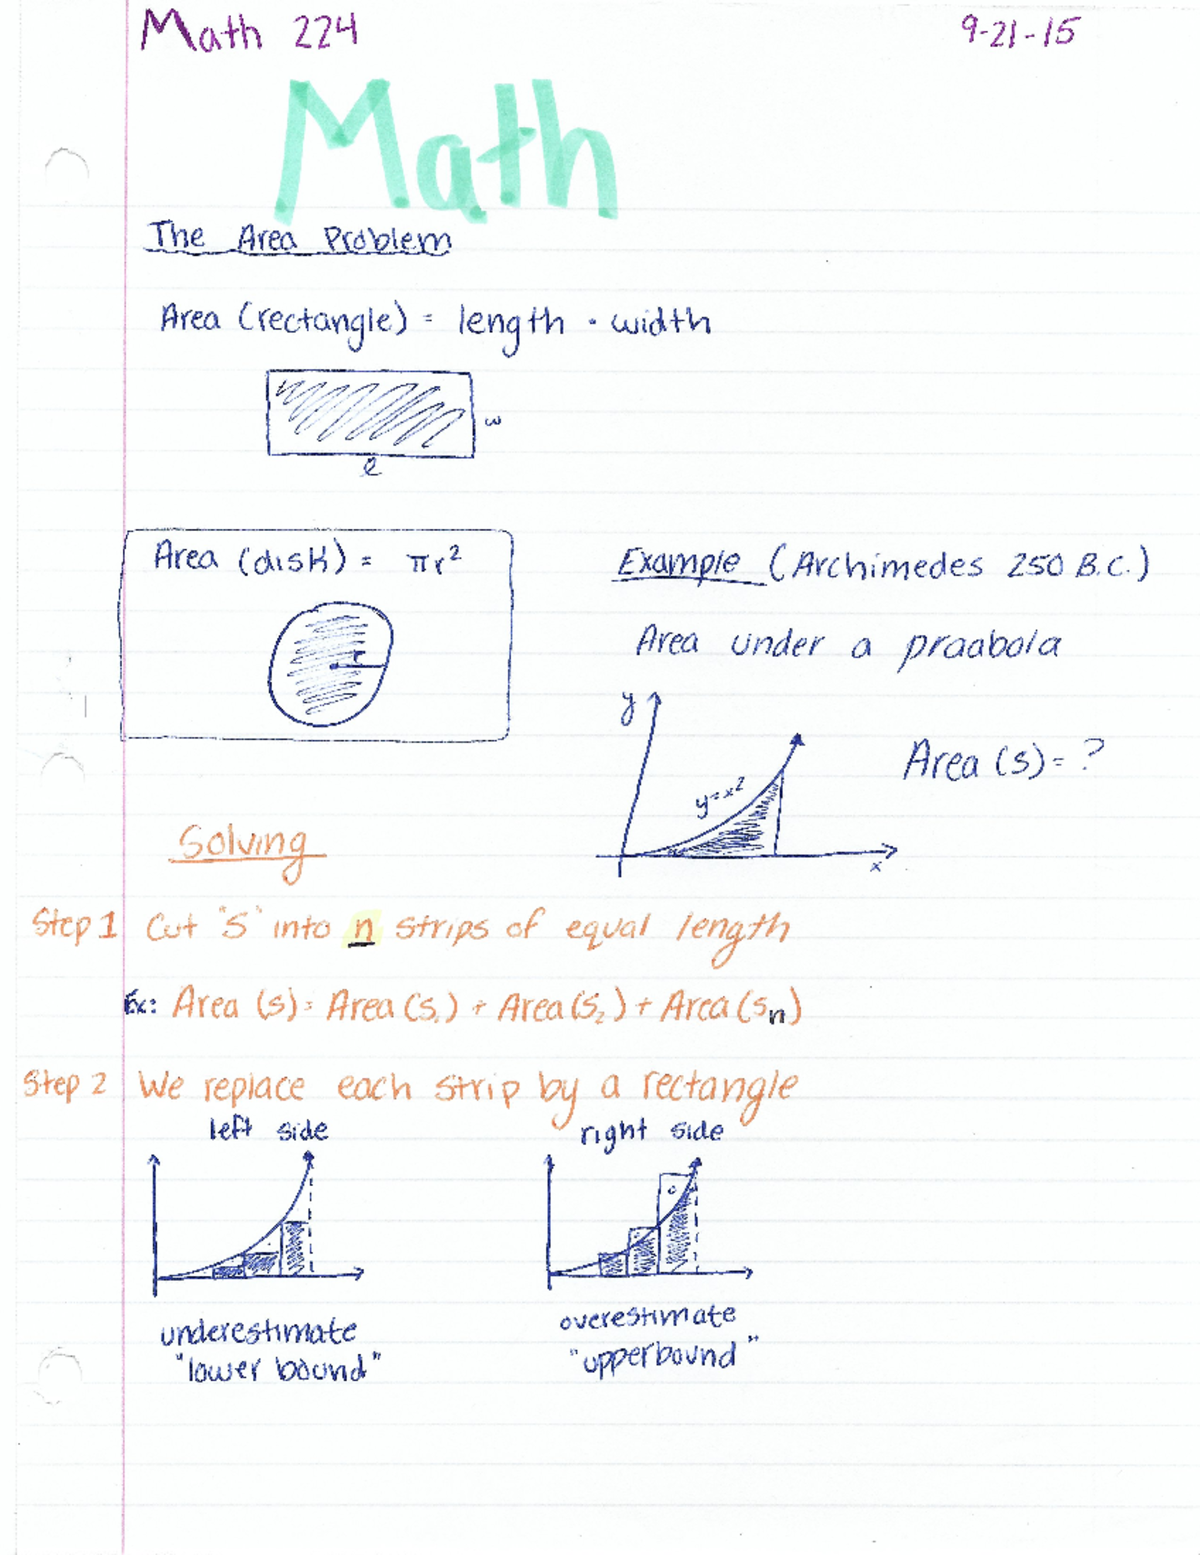 Math 224
9-21-15
Math
The Area Problem
Area (rectangle) = length · width
w
l
Area (disk) = πr²
r
Example (Archimedes 250 B.C.)
Area under a praabola
y
y=x²
x
Area (s) = ?
Solving
Step 1 Cut "S" into n strips of equal length
Ex: Area (s) = Area (S₁) + Area (S₂) + Area (Sn)
Step 2 We replace each strip by a rectangle
left side
right side
underestimate
"lower bound"
overestimate
"upperbound"